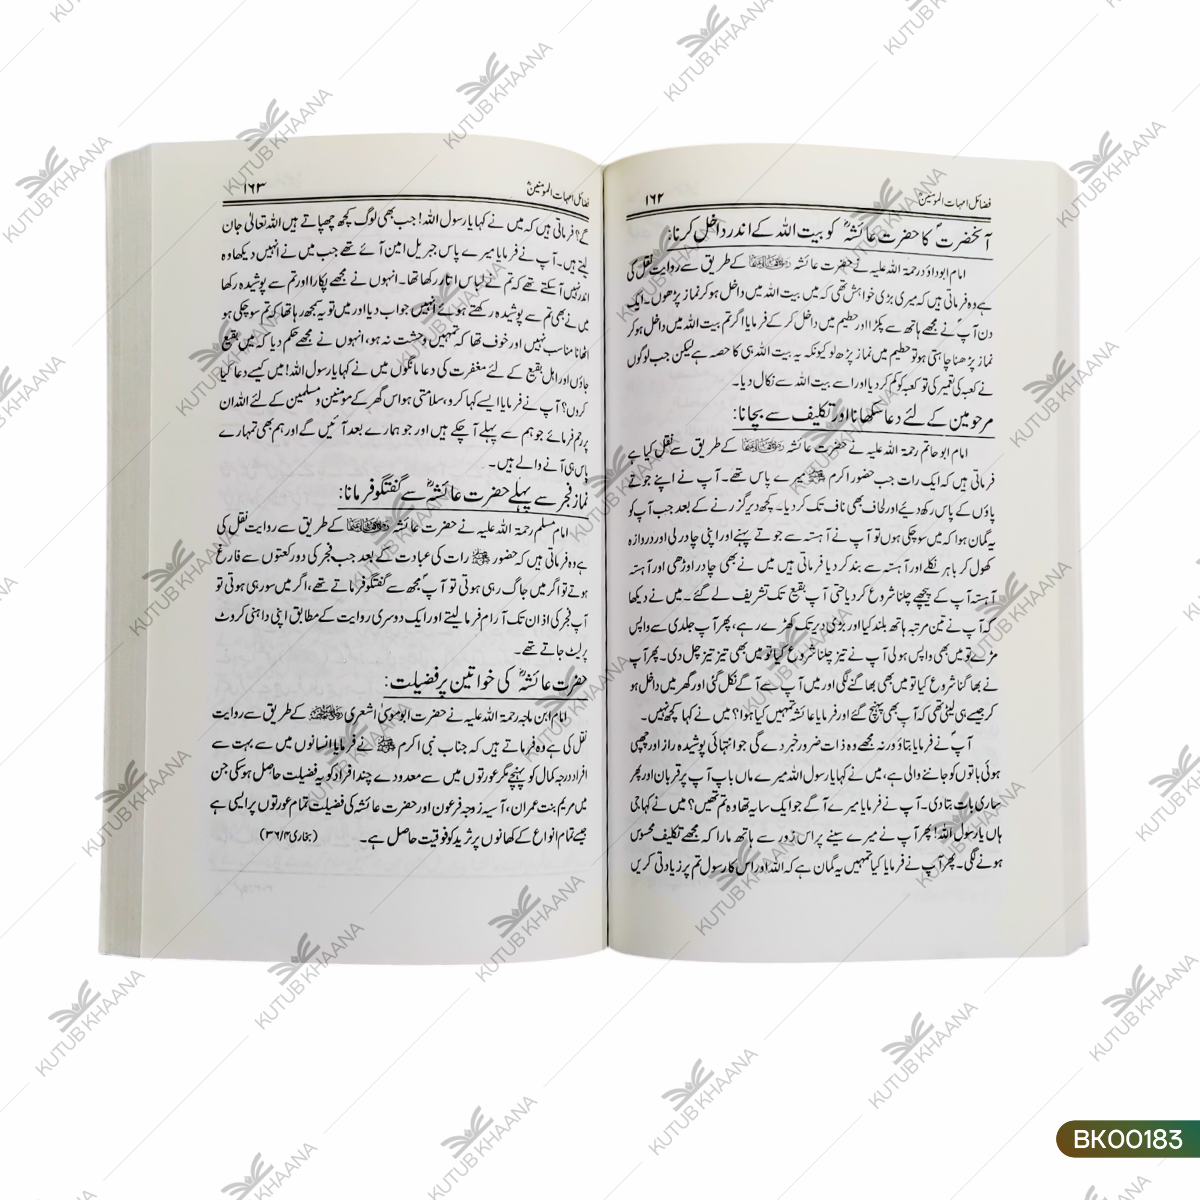 ۱۶۲ فضائل امہات المومنینؓ
آنحضرتؐ کا حضرت عائشہؓ کو بیت اللہ کے اندر داخل کرنا:
امام ابوداؤد رحمۃ اللہ علیہ نے حضرت عائشہ رضی اللہ عنہا کے طریق سے روایت نقل کی
ہے وہ فرماتی ہیں کہ میری بڑی خواہش تھی کہ میں بیت اللہ میں داخل ہو کر نماز پڑھوں۔ ایک
دن آپؐ نے مجھے ہاتھ سے پکڑا اور حطیم میں داخل کر کے فرمایا اگر تم بیت اللہ میں داخل ہو کر
نماز پڑھنا چاہتی ہو تو حطیم میں نماز پڑھ لو کیونکہ یہ بیت اللہ ہی کا حصہ ہے لیکن جب لوگوں
نے کعبہ کی تعمیر کی تو کعبہ کو کم کر دیا اور اسے بیت اللہ سے نکال دیا۔
مرحومین کے لئے دعا سکھانا اور تکلیف سے بچانا:
امام ابوحاتم رحمۃ اللہ علیہ نے حضرت عائشہ رضی اللہ عنہا کے طریق سے نقل کیا ہے
فرماتی ہیں کہ ایک رات جب حضور اکرم ﷺ میرے پاس تھے۔ آپ نے اپنے جوتے
پاؤں کے پاس رکھ دیئے اور لحاف بھی ناف تک کر دیا۔ کچھ دیر گزرنے کے بعد جب آپ کو
یہ گمان ہوا کہ میں سو چکی ہوں تو آپ نے آہستہ سے جوتے پہنے اور اپنی چادر لی اور دروازہ
کھول کر باہر نکلے اور آہستہ سے بند کر دیا فرماتی ہیں میں نے بھی چادر اوڑھی اور آہستہ
آہستہ آپ کے پیچھے چلنا شروع کر دیا حتی آپ بقیع تک تشریف لے گئے۔ میں نے دیکھا
کہ آپ نے تین مرتبہ ہاتھ بلند کیا اور بڑی دیر تک کھڑے رہے، پھر آپ جلدی سے واپس
مڑے تو میں بھی واپس ہولی آپ نے تیز چلنا شروع کیا تو میں بھی تیز تیز چل دی۔ پھر آپ
نے بھاگنا شروع کیا تو میں بھی بھاگنے لگی اور میں آپ سے آگے نکل گئی اور گھر میں داخل ہو
کر جیسے ہی لیٹی تھی کہ آپ بھی پہنچ گئے اور فرمایا عائشہ تمہیں کیا ہوا؟ میں نے کہا کچھ نہیں۔
آپؐ نے فرمایا بتاؤ ورنہ مجھے وہ ذات ضرور خبر دے گی جو انتہائی پوشیدہ راز اور چھپی
ہوئی باتوں کو جاننے والی ہے، میں نے کہا یا رسول اللہ میرے ماں باپ آپ پر قربان اور پھر
ساری بات بتا دی۔ آپ نے فرمایا میرے آگے جو ایک سایہ تھا وہ تم تھیں؟ میں نے کہا جی
ہاں یا رسول اللہ! پھر آپ نے میرے سینے پر اس زور سے ہاتھ مارا کہ مجھے تکلیف محسوس
ہونے لگی۔ پھر آپ نے فرمایا کیا تمہیں یہ گمان ہے کہ اللہ اور اس کا رسول تم پر زیادتی کریں
۱۶۳ فضائل امہات المومنینؓ
گے؟ فرماتی ہیں کہ میں نے کہا یا رسول اللہ! جب بھی لوگ کچھ چھپاتے ہیں اللہ تعالیٰ جان
لیتے ہیں۔ آپ نے فرمایا میرے پاس جبریل امین آئے تھے جب میں نے میں دیکھا وہ
اندر نہیں آ سکتے تھے کہ تم نے لباس اتار رکھا تھا۔ انہوں نے مجھے پکارا اور تم سے پوشیدہ رکھا
میں نے بھی تم سے پوشیدہ رکھتے ہوئے انہیں جواب دیا اور میں تو یہ سمجھ رہا تھا کہ تم سو چکی ہو
اٹھانا مناسب نہیں اور خوف تھا کہ تمہیں وحشت نہ ہو، انہوں نے مجھے حکم دیا کہ میں بقیع
جاؤں اور اہل بقیع کے لئے مغفرت کی دعا مانگوں میں نے کہا یا رسول اللہ! میں کیسے دعا کیا
کروں؟ آپ نے فرمایا ایسے کہا کرو، سلامتی ہو اس گھر کے مومنین و مسلمین کے لئے اللہ ان
پر رحم فرمائے جو ہم سے پہلے آ چکے ہیں اور جو ہمارے بعد آئیں گے اور ہم بھی تمہارے
پاس ہی آنے والے ہیں۔
نماز فجر سے پہلے حضرت عائشہؓ سے گفتگو فرمانا:
امام مسلم رحمۃ اللہ علیہ نے حضرت عائشہ رضی اللہ عنہا کے طریق سے روایت نقل کی
ہے وہ فرماتی ہیں کہ حضور ﷺ رات کی عبادت کے بعد جب فجر کی دو رکعتوں سے فارغ
ہوتے تو اگر میں جاگ رہی ہوتی تو آپؐ مجھ سے گفتگو فرماتے تھے، اگر میں سو رہی ہوتی تو
آپ فجر کی اذان تک آرام فرما لیتے اور ایک دوسری روایت کے مطابق اپنی داہنی کروٹ
پر لیٹ جاتے تھے۔
حضرت عائشہؓ کی خواتین پر فضیلت:
امام ابن ماجہ رحمۃ اللہ علیہ نے حضرت ابوموسیٰ اشعری رضی اللہ عنہ کے طریق سے روایت
نقل کی ہے وہ فرماتے ہیں کہ جناب نبی اکرم ﷺ نے فرمایا انسانوں میں سے بہت سے
افراد درجہ کمال کو پہنچے مگر عورتوں میں سے معدودے چند افراد کو یہ فضیلت حاصل ہو سکی جن
میں مریم بنت عمران، آسیہ زوجہ فرعون اور حضرت عائشہ کی فضیلت تمام عورتوں پر ایسی ہے
جیسے تمام انواع کے کھانوں پر ثرید کو فوقیت حاصل ہے۔ (بخاری ۳۶/۴)
KUTUB KHAANA
BK00183